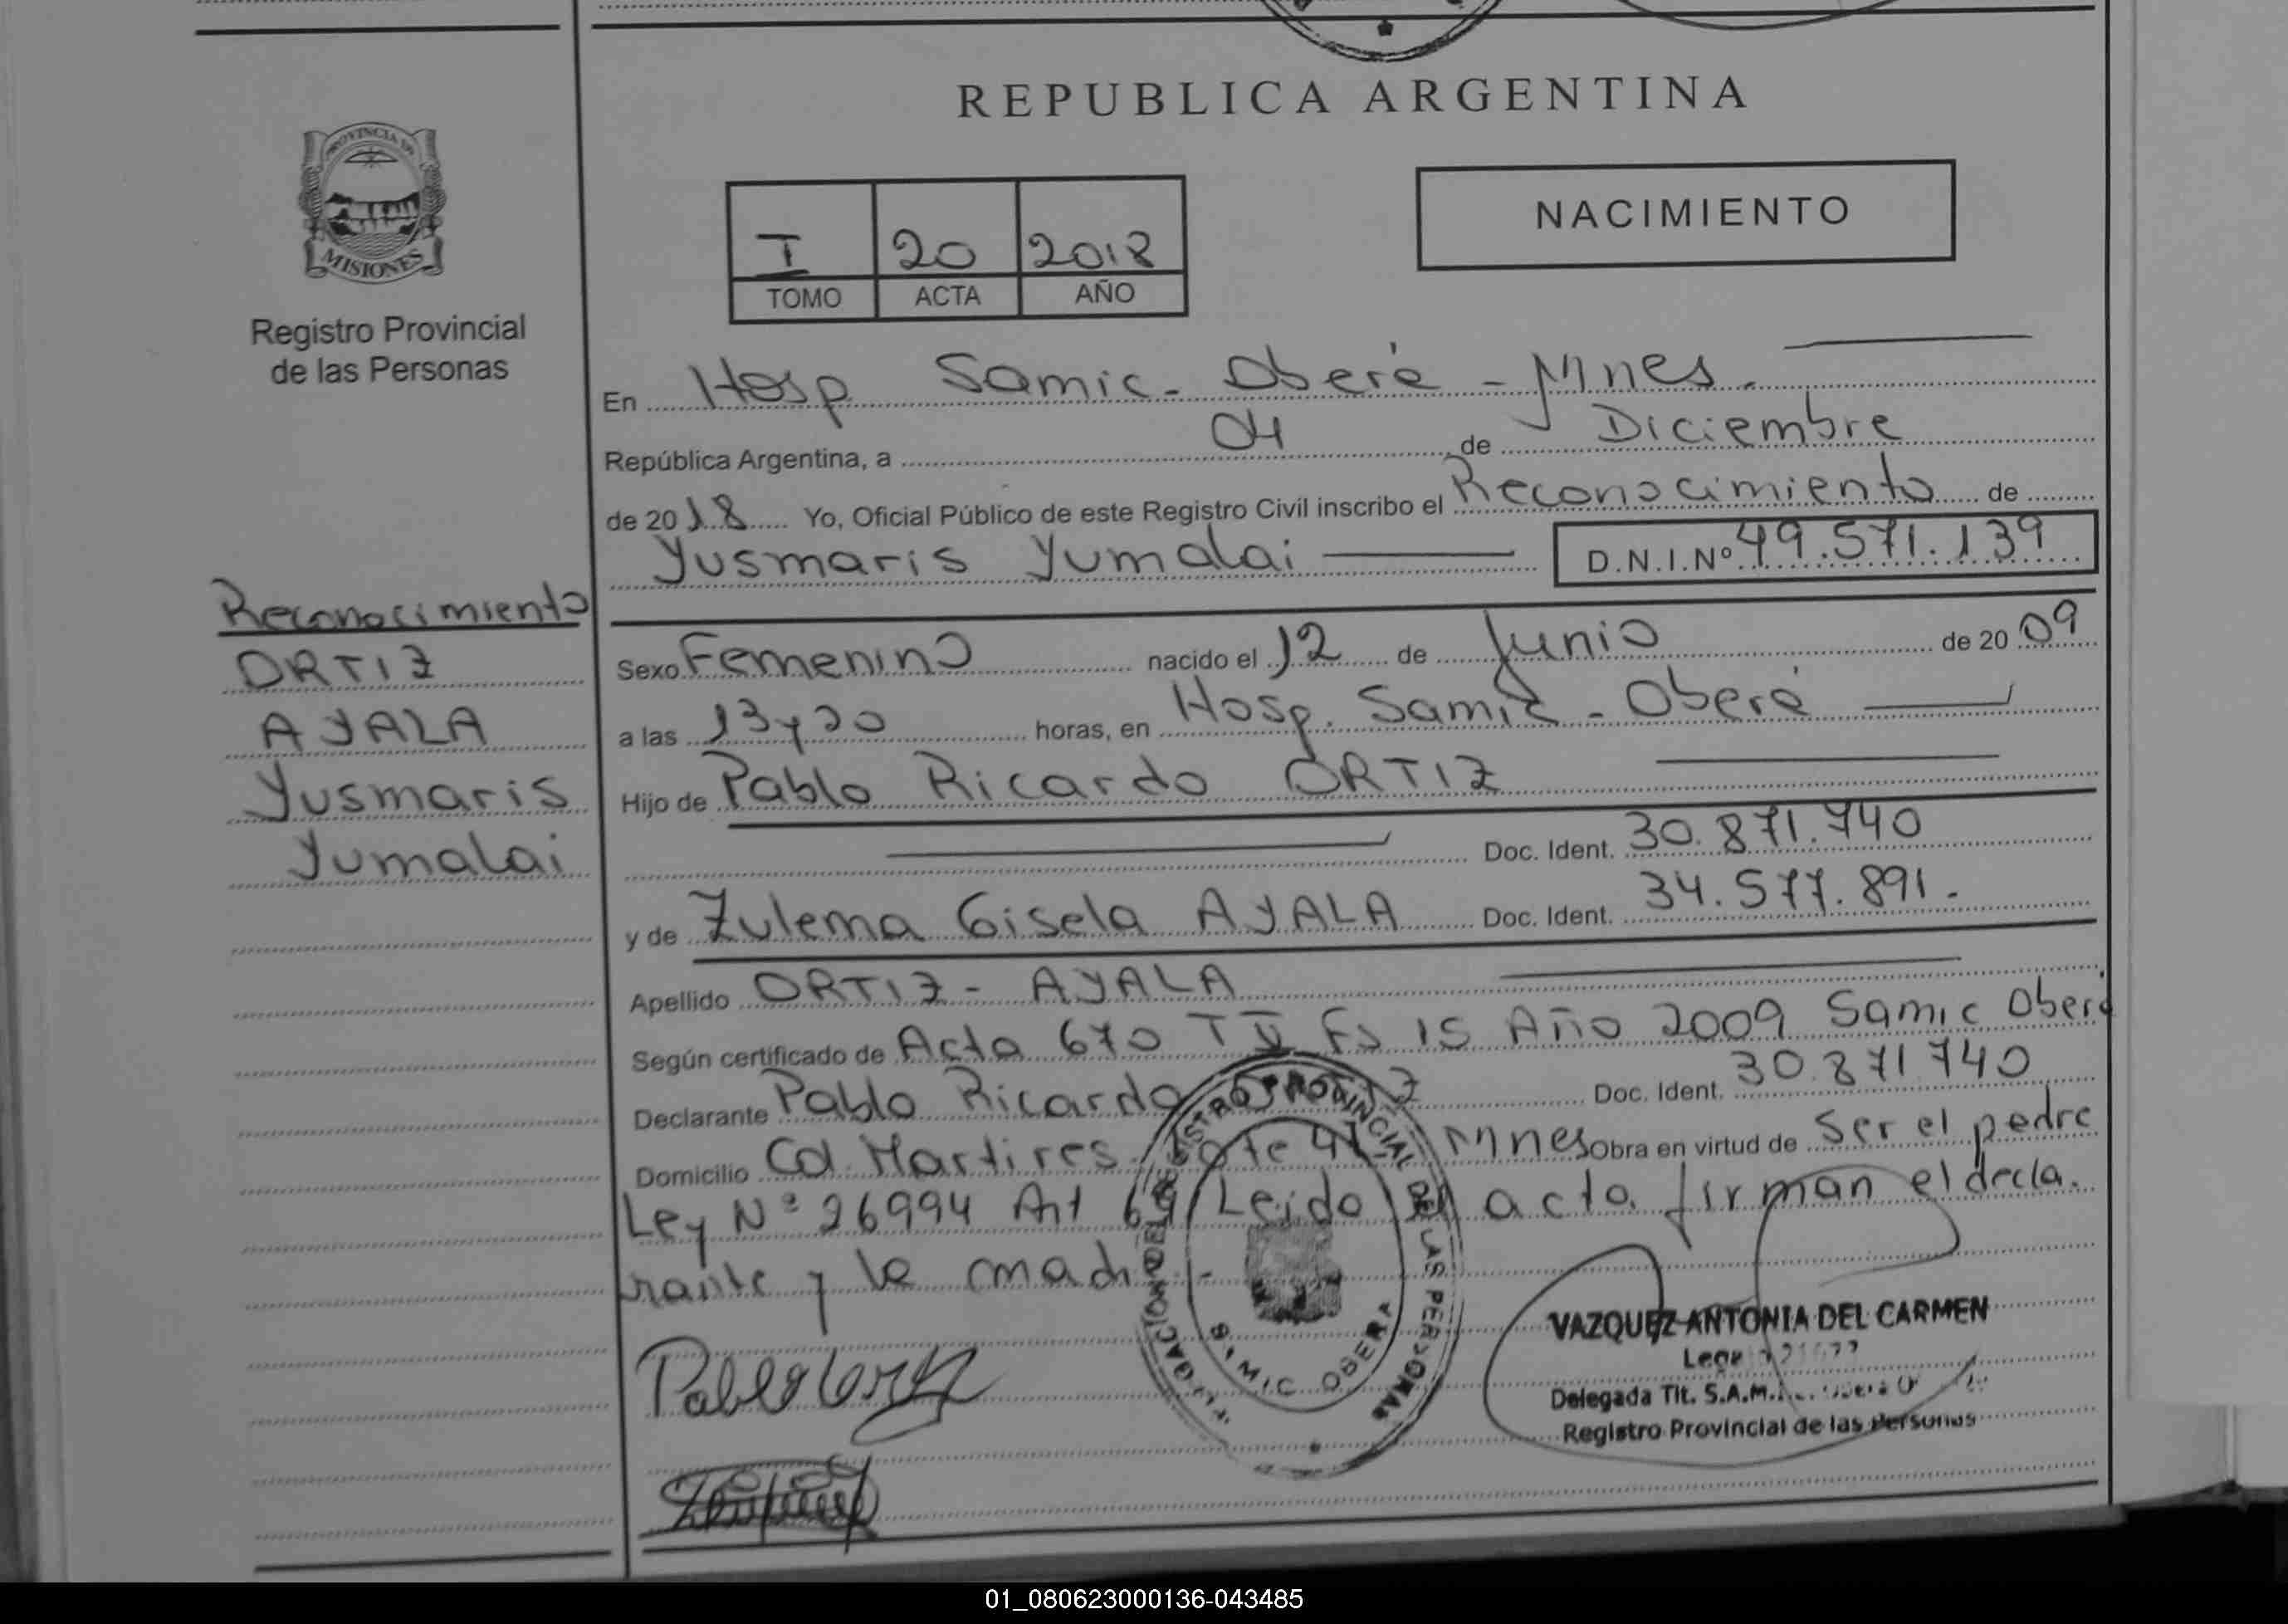 REPUBLICA ARGENTINA
PROVINCIA DE
MISIONES
Registro Provincial
de las Personas
NACIMIENTO
I 20 2018
TOMO ACTA AÑO
En Hosp Samic - Oberá - Mnes.
República Argentina, a 04 de Diciembre
de 2018 Yo, Oficial Público de este Registro Civil inscribo el Reconocimiento de
Yusmaris Yumalai D.N.I.Nº 49.571.139
Reconocimiento
ORTIZ
AYALA
Yusmaris
Yumalai
Sexo Femenino nacido el 12 de Junio de 2009
a las 13 y 20 horas, en Hosp. Samic - Oberá
Hijo de Pablo Ricardo ORTIZ
Doc. Ident. 30.871.740
y de Zulema Gisela AYALA Doc. Ident. 34.577.891.
Apellido ORTIZ - AYALA
Según certificado de Acta 670 T Fs 15 Año 2009 Samic Oberá
Declarante Pablo Ricardo Doc. Ident. 30.871.740
Domicilio Col Martires Lote Mnes Obra en virtud de Ser el padre
Ley Nº 26994 Art 64 Leido el acta firman el decla.
rante y la madre
VAZQUEZ ANTONIA DEL CARMEN
Delegada Tit. S.A.M.
Registro Provincial de las Personas
REGISTRO PROVINCIAL DE LAS PERSONAS
SAMIC OBERA
01_080623000136-043485